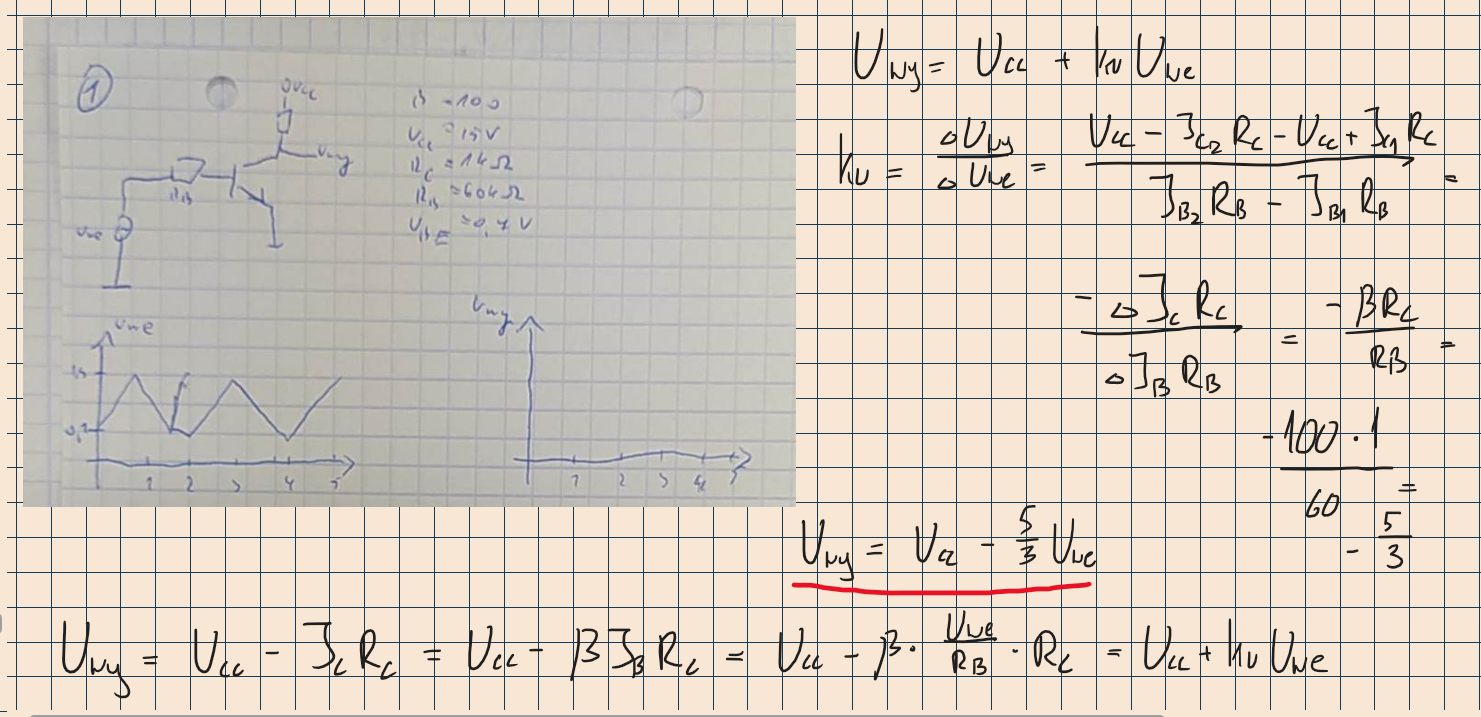 ①
Ucc
β = 100
Ucc = 15V
Rc = 1kΩ
RB = 60kΩ
UBE = 0,7V
Uwy
RB
Uwe
Uwe
1,5
0,7
1 2 3 4 5
Uwy
1 2 3 4 5
Uwy = Ucc + ku Uwe
ku = ΔUwy / ΔUwe = (Ucc - Jc2 Rc - Ucc + Jc1 Rc) / (JB2 RB - JB1 RB) =
-ΔJc Rc / ΔJB RB = -βRc / RB =
-100·1 / 60 =
-5/3
Uwy = Ucc - 5/3 Uwe
Uwy = Ucc - Jc Rc = Ucc - βJB Rc = Ucc - β · Uwe/RB · Rc = Ucc + ku Uwe